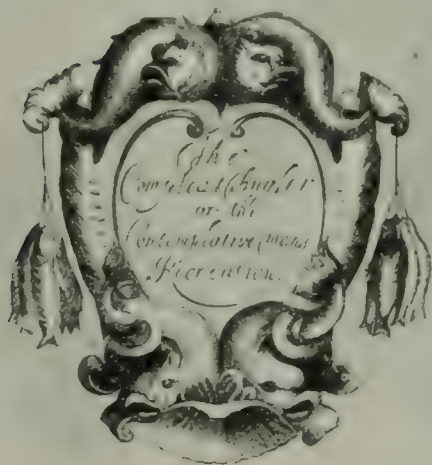 The
Compleat Angler
or the
Contemplative mans
Recreation.